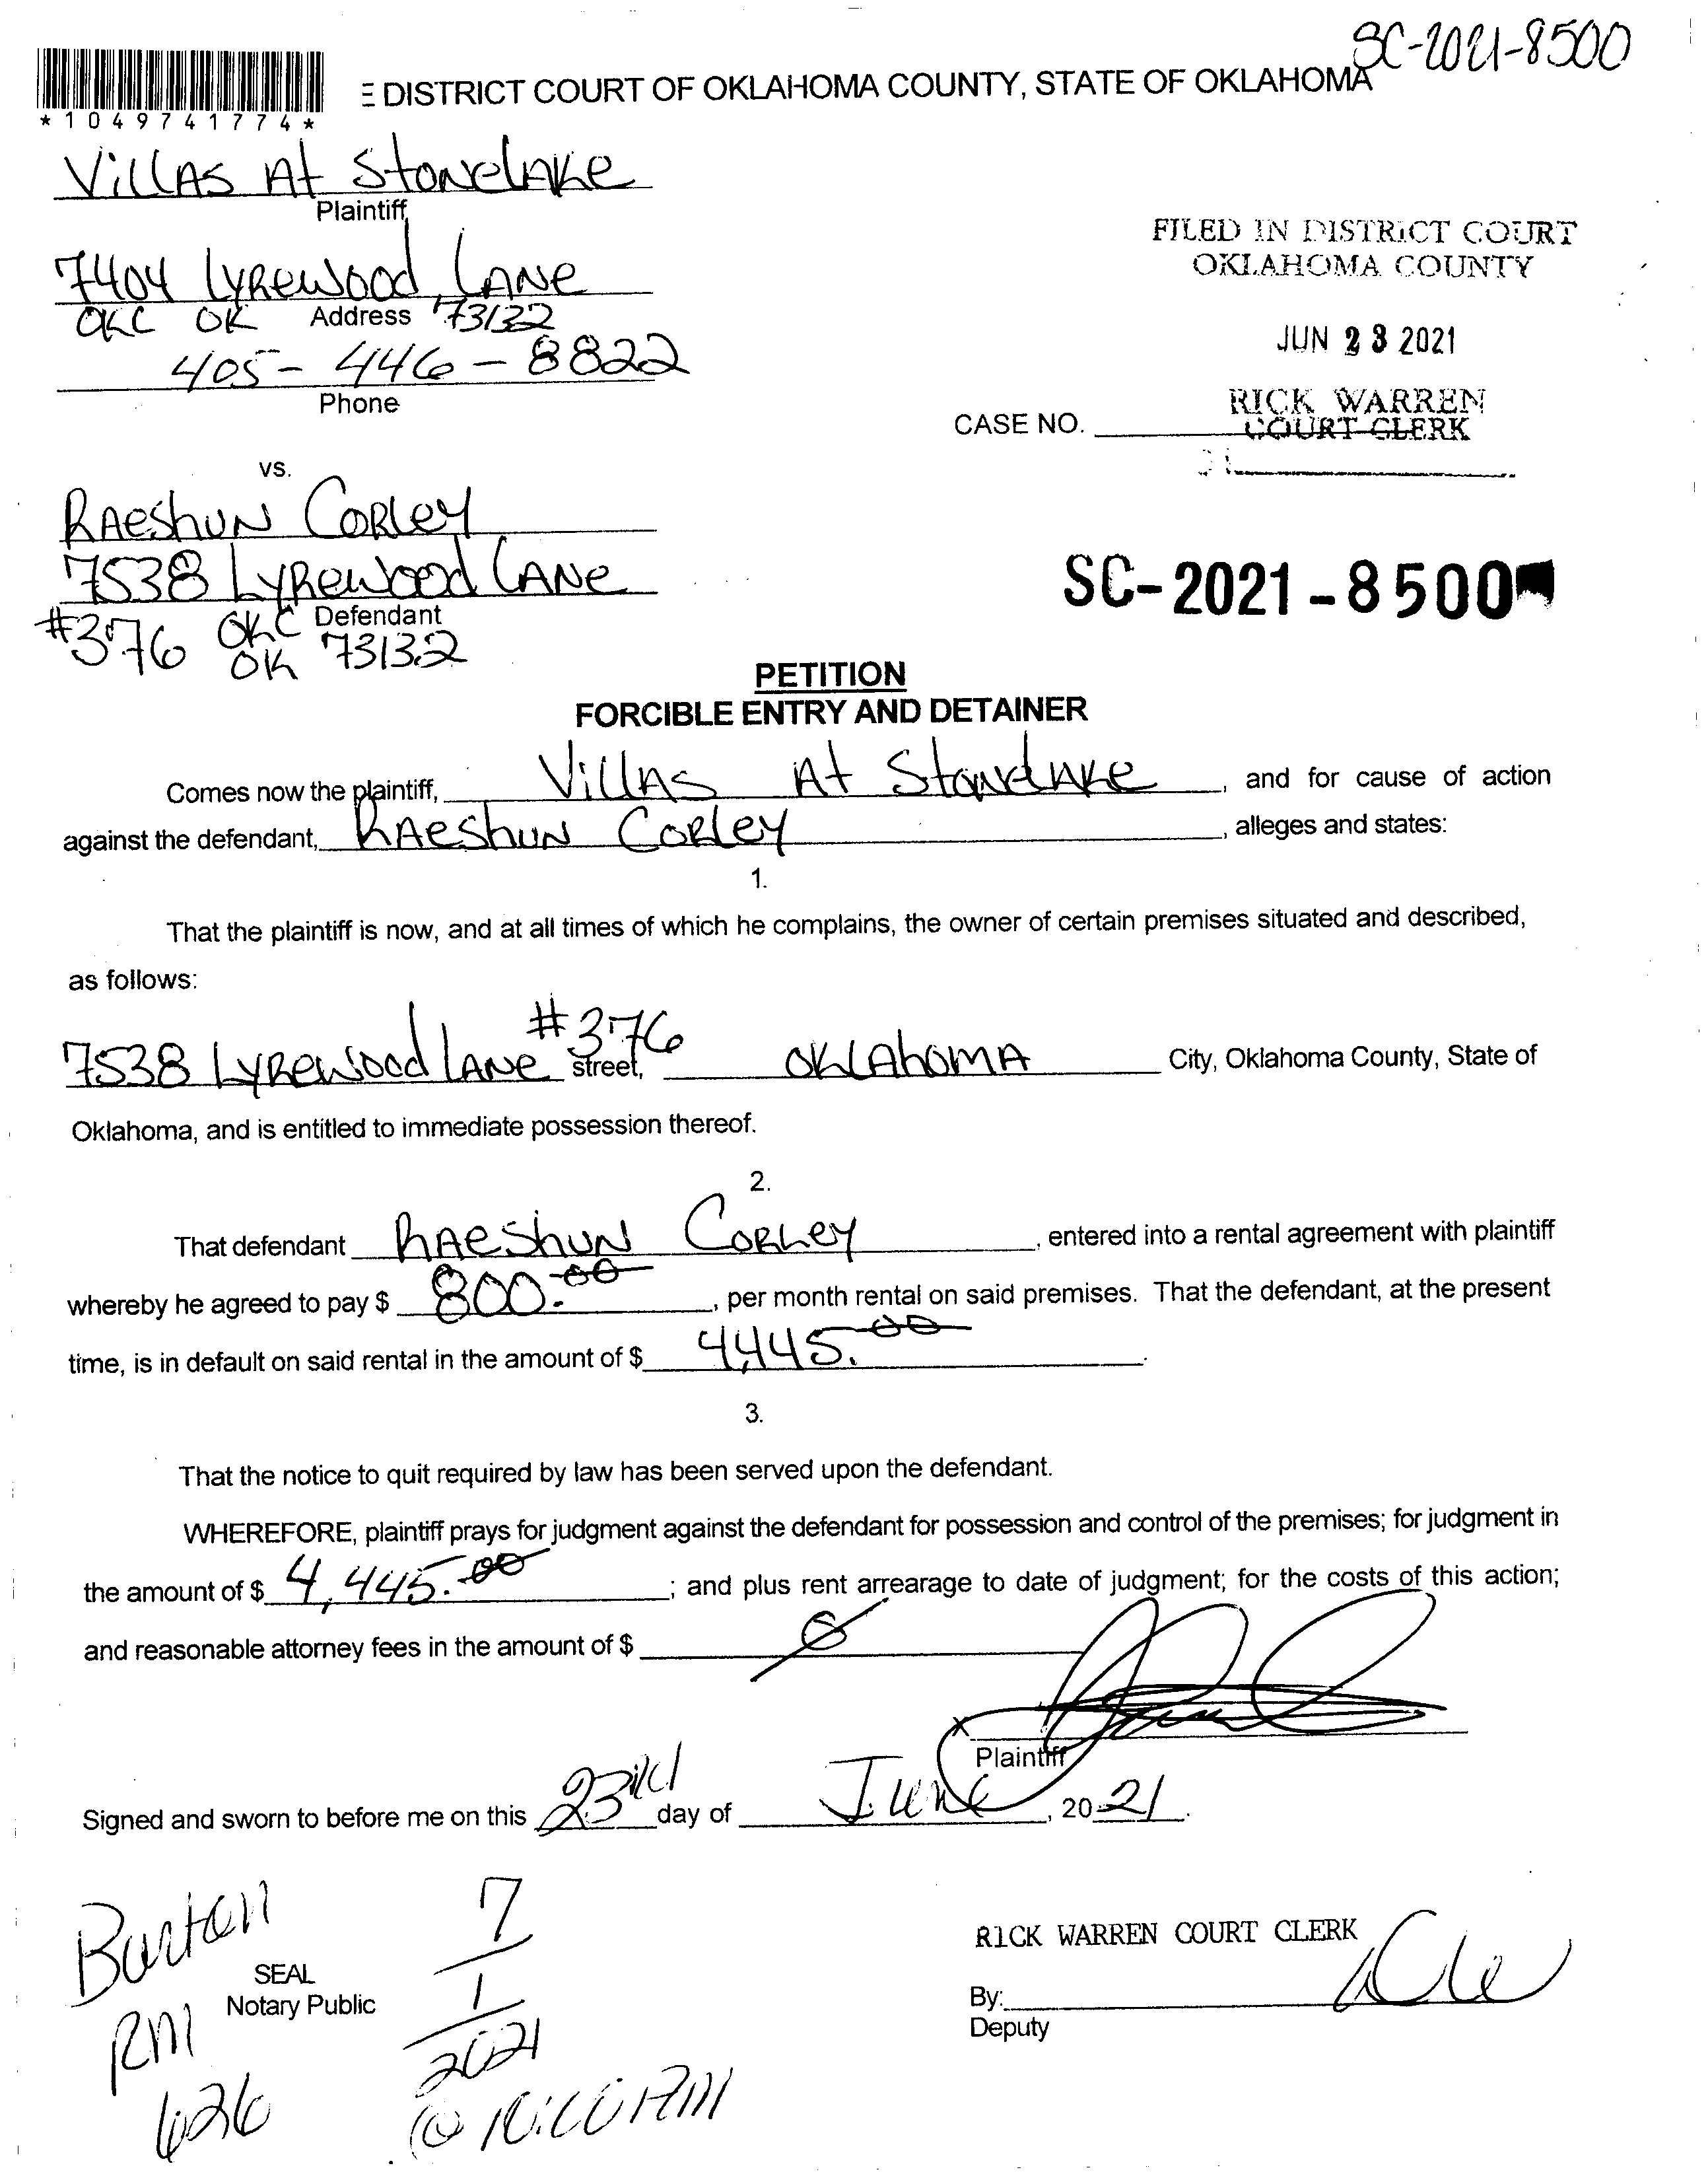 SC-2021-8500
*1049741774*
E DISTRICT COURT OF OKLAHOMA COUNTY, STATE OF OKLAHOMA
Villas At Stonelake
Plaintiff
7404 Lyrewood Lane
OKC OK Address 73132
405-446-8822
Phone
FILED IN DISTRICT COURT
OKLAHOMA COUNTY
JUN 23 2021
RICK WARREN
COURT CLERK
CASE NO.
vs.
Raeshun Corley
7538 Lyrewood Lane
Defendant
#376 OKC
OK 73132
SC-2021-8500
PETITION
FORCIBLE ENTRY AND DETAINER
Comes now the plaintiff, Villas At Stonelake, and for cause of action
against the defendant, Raeshun Corley, alleges and states:
1.
That the plaintiff is now, and at all times of which he complains, the owner of certain premises situated and described,
as follows:
7538 Lyrewood Lane #376 street, Oklahoma City, Oklahoma County, State of
Oklahoma, and is entitled to immediate possession thereof.
2.
That defendant Raeshun Corley, entered into a rental agreement with plaintiff
whereby he agreed to pay $ 800.00, per month rental on said premises. That the defendant, at the present
time, is in default on said rental in the amount of $ 4,445.00.
3.
That the notice to quit required by law has been served upon the defendant.
WHEREFORE, plaintiff prays for judgment against the defendant for possession and control of the premises; for judgment in
the amount of $ 4,445.00; and plus rent arrearage to date of judgment; for the costs of this action;
and reasonable attorney fees in the amount of $ 0
x
Plaintiff
Signed and sworn to before me on this 23rd day of June, 2021.
Burton
RM
626
SEAL
Notary Public
7
1
2021
RICK WARREN COURT CLERK
By:
Deputy